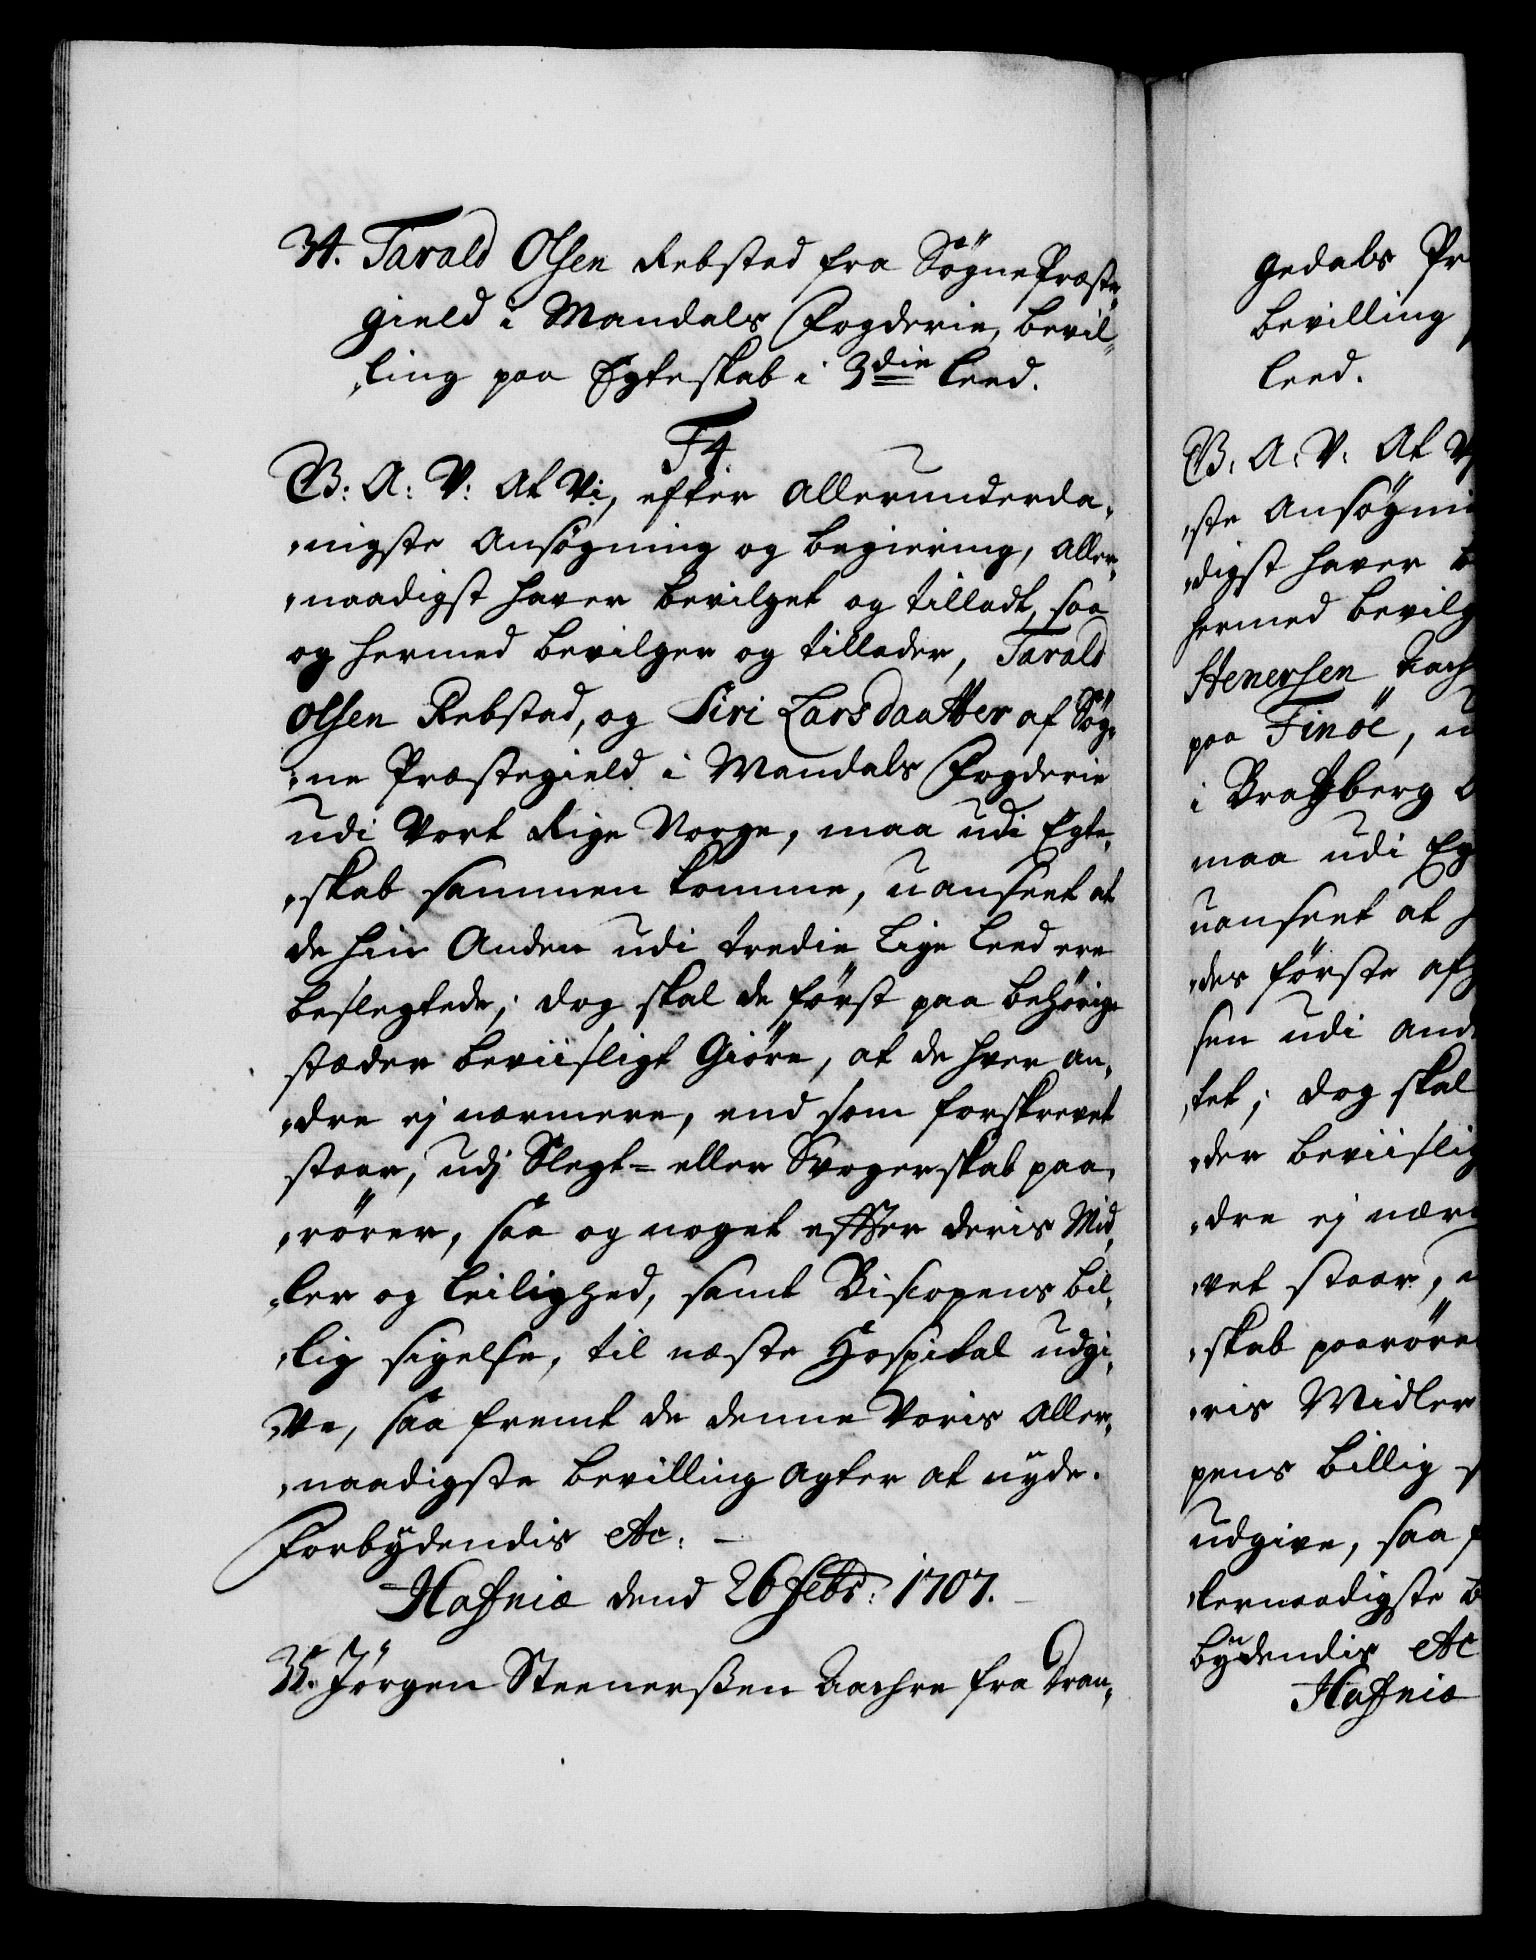 34. Tarald Olsen Rebstad fra Søgne Præste
gield i Mandals Fogderie, bevil
ling paa Egteskab i 3die Leed.
F4.
G: A: V: At Vi, efter allerunderda
nigste Ansøgning og begiering, aller
naadigst haver bevilget og tilladt, saa
og hermed bevilger og tillader, Tarald
Olsen Rebstad, og Siri Larsdaatter af Søg
ne Præstegield i Mandals Fogderie
udi Vort Rige Norge, maa udi Egte
skab sammen komme, uanseet at
de hin Anden udi tredie Lige Leed ere
beslegtede; dog skal de først paa behørige
stæder beviisligt Giøre, at de hver an
dre ej nærmere, end som forskrevet
staar, udj Slegt= eller Svogerskab paa
rører, saa og noget effter deris Mid
ler og Leilighed, samt Biscopens bil
lig sigelse, til næste Hospital udgi
ve, saa fremt de denne Voris aller
naadigste bevilling agter at nyde.
Forbydendis etc:
Hafniæ dend 26 Febr: 1707.
35. Jørgen Steenerßen Aachre fra Dran
gedals Pr
bevilling
Leed.
G: A: V: At V
ste Ansøgni
digst haver b
hermed bevilg
Stenersen Aach
paa Finöe, u
i Bratzberg
maa udi Eg
uanseet at h
des første af
sen udi and
tet; dog skal
der beviislig
dre ej nær
vet staar, u
skab paarøre
ris Midler
pens billig s
udgive, saa f
lernaadigste b
bydendis etc
Hafniæ